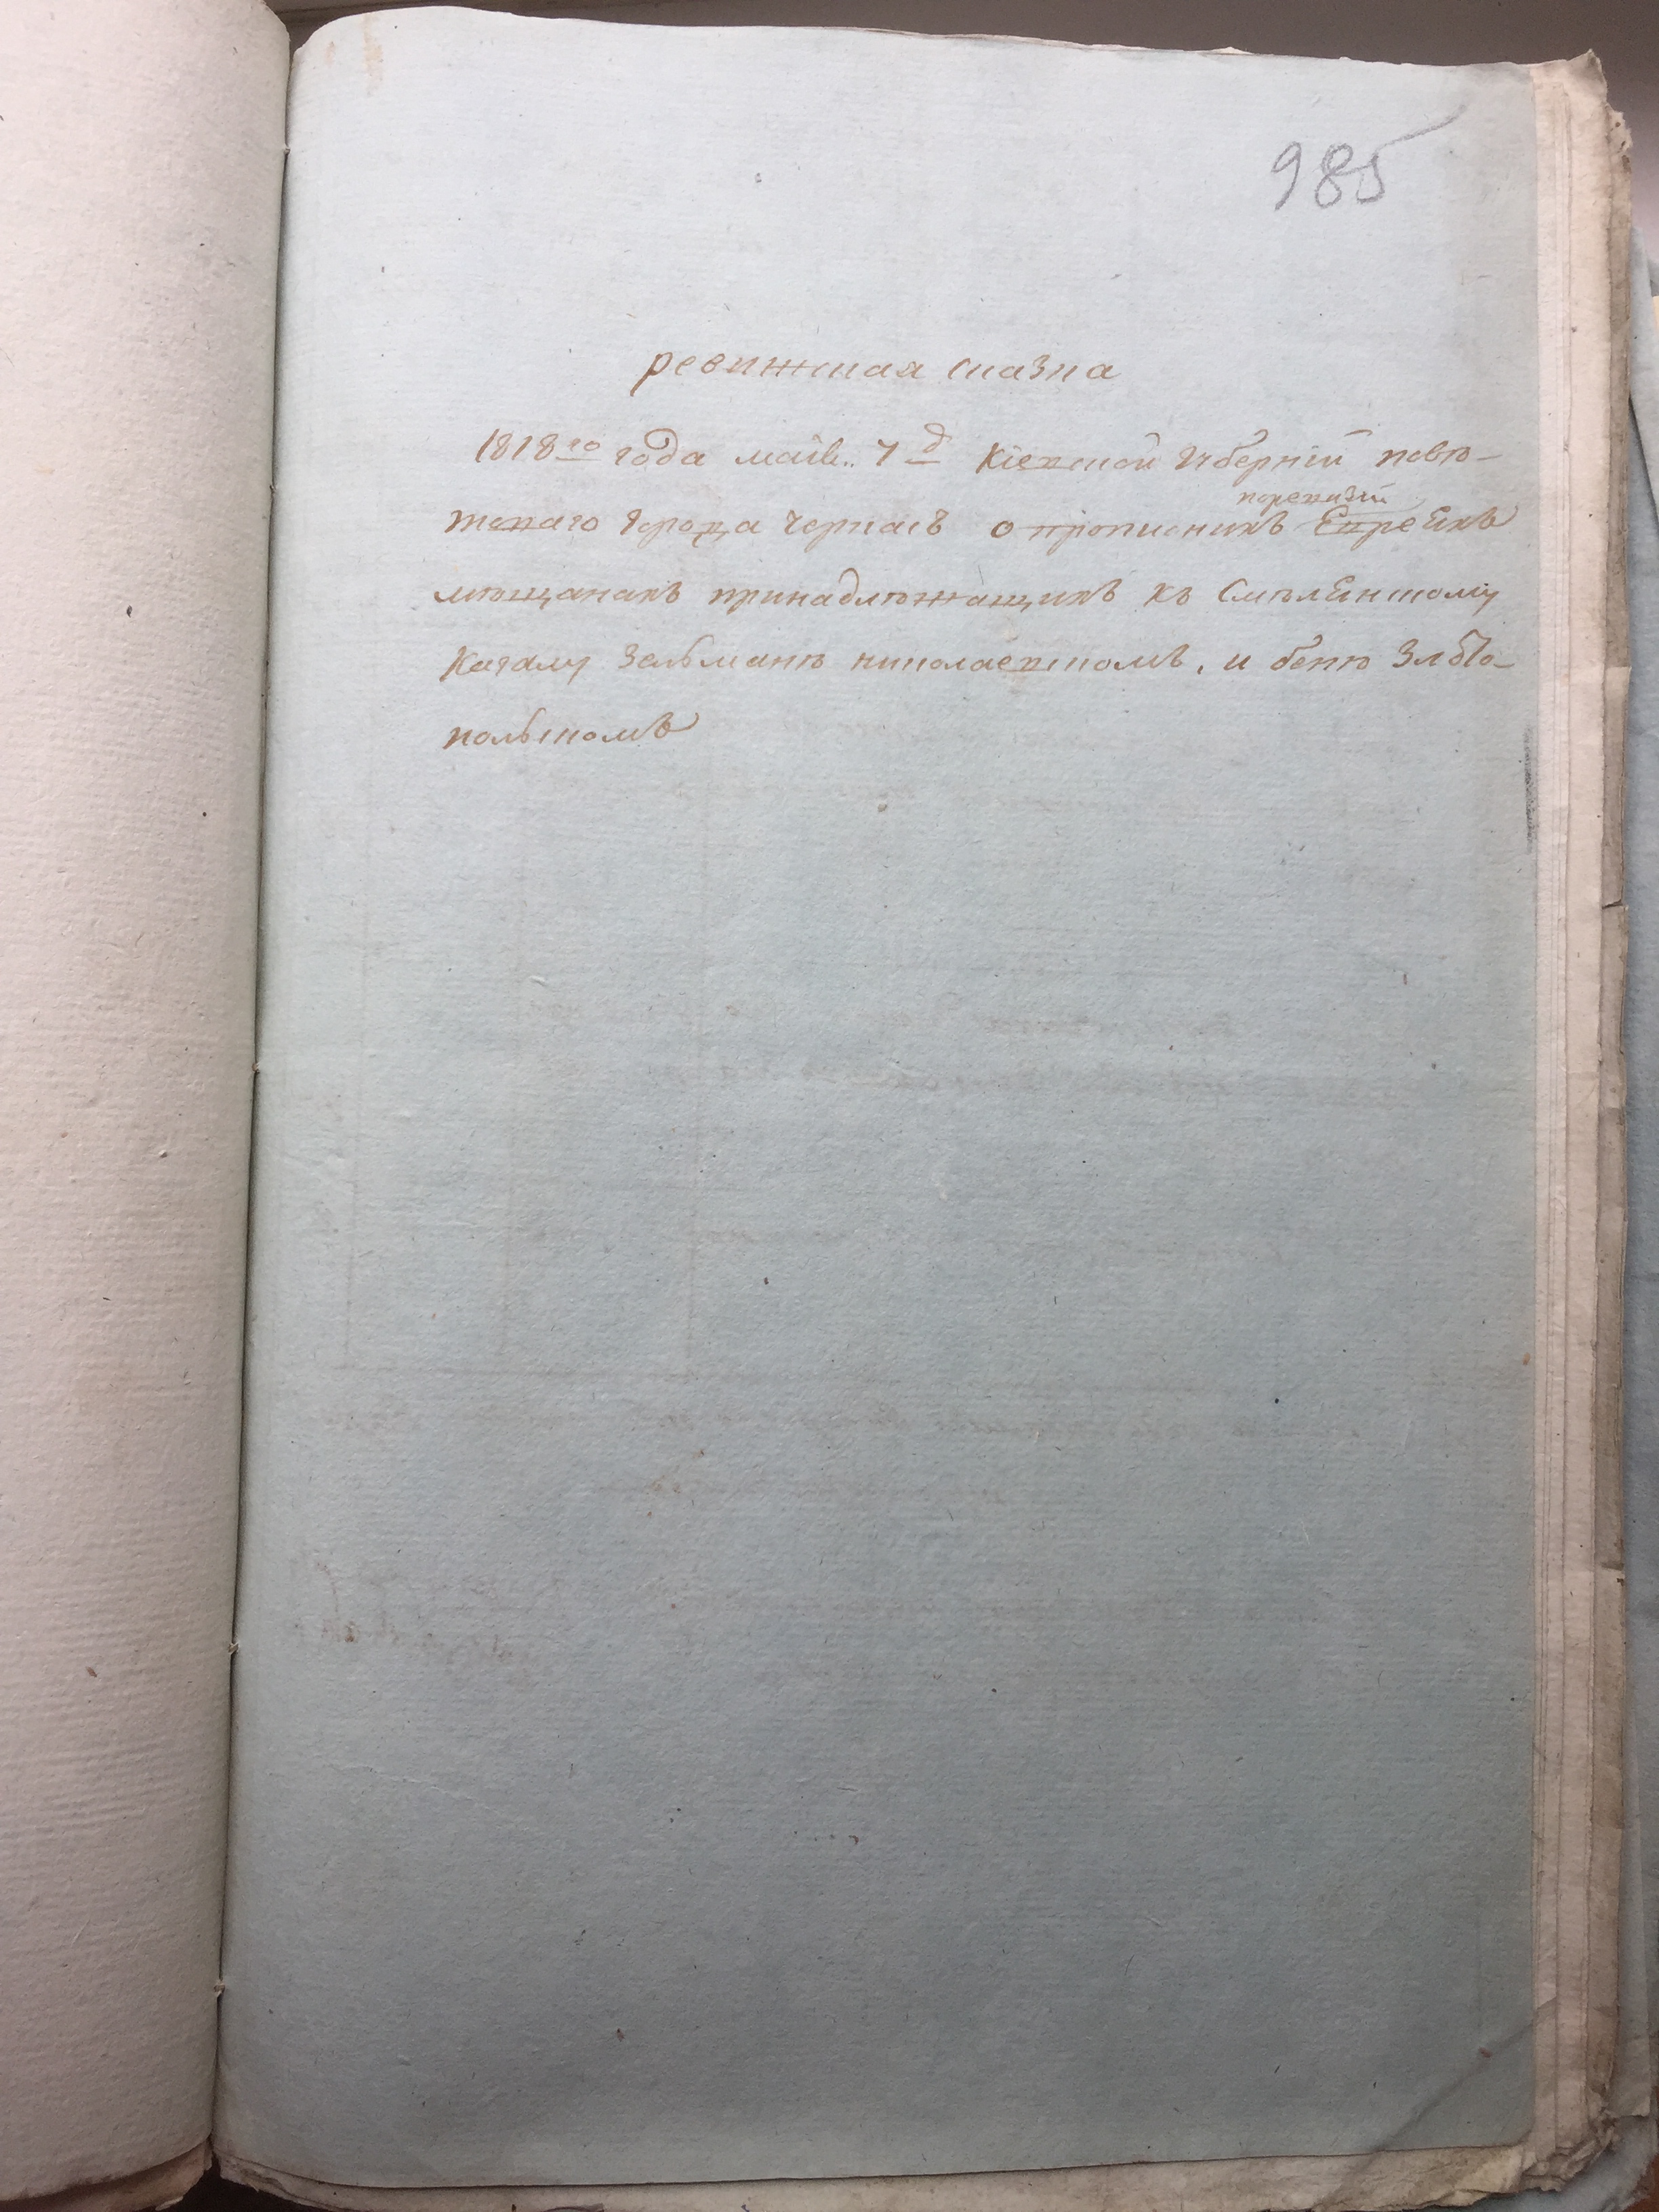 985
ревижская сказка
1818го года маiя 7д Кiевской Губернiи повѣ-
товаго города Черкасъ о прописныхъ
поревизiи
Евреихъ
мѣщанахъ принадлѣжащихъ къ Смѣлянскому
Кагалу Зельманѣ николаевскомъ, и беркѣ Злато-
польскомъ